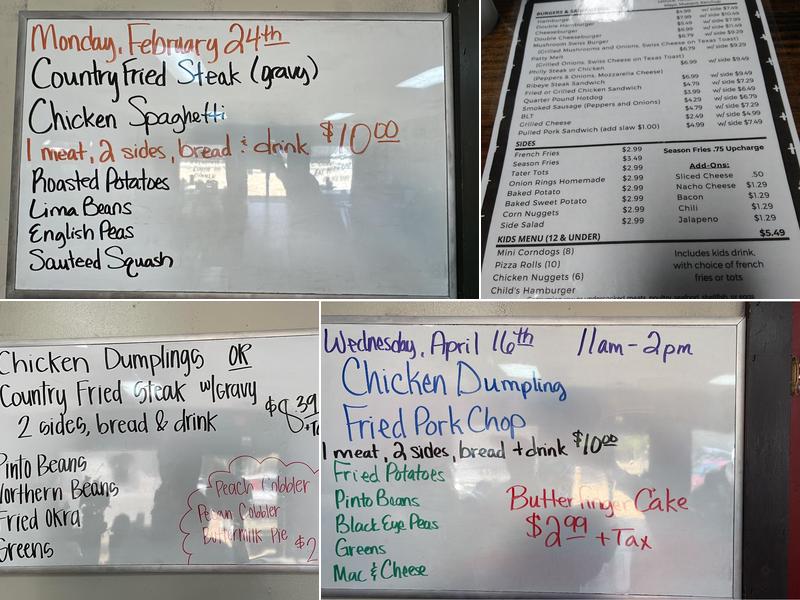 Monday, February 24th
Country Fried Steak (gravy)
Chicken Spaghetti
1 meat, 2 sides, bread & drink $10.00
Roasted Potatoes
Lima Beans
English Peas
Sauteed Squash
BURGERS &
Hamburger $4.99 w/ side $7.49
Double Hamburger $7.99 w/ side $10.49
Cheeseburger $5.49 w/ side $7.99
Double Cheeseburger $8.99 w/ side $11.49
Mushroom Swiss Burger $6.79 w/ side $9.29
(Grilled Mushrooms and Onions, Swiss Cheese on Texas Toast)
Patty Melt $6.79 w/ side $9.29
(Grilled Onions, Swiss Cheese on Texas Toast)
Philly Steak or Chicken $6.99 w/ side $9.49
(Peppers & Onions, Mozzarella Cheese)
Ribeye Steak Sandwich $6.99 w/ side $9.49
Fried or Grilled Chicken Sandwich $4.79 w/ side $7.29
Quarter Pound Hotdog $3.99 w/ side $6.49
Smoked Sausage (Peppers and Onions) $4.29 w/ side $6.79
BLT $4.79 w/ side $7.29
Grilled Cheese $2.49 w/ side $4.99
Pulled Pork Sandwich (add slaw $1.00) $4.99 w/ side $7.49
SIDES
French Fries $2.99
Season Fries $3.49
Tater Tots $2.99
Onion Rings Homemade $2.99
Baked Potato $2.99
Baked Sweet Potato $2.99
Corn Nuggets $2.99
Side Salad $2.99
Season Fries .75 Upcharge
Add-Ons:
Sliced Cheese .50
Nacho Cheese $1.29
Bacon $1.29
Chili $1.29
Jalapeno $1.29
KIDS MENU (12 & UNDER) $5.49
Mini Corndogs (8)
Pizza Rolls (10)
Chicken Nuggets (6)
Child's Hamburger
Includes kids drink,
with choice of french
fries or tots
Chicken Dumplings OR
Country Fried Steak w/Gravy
2 sides, bread & drink $8.39
Pinto Beans
Northern Beans
Fried Okra
Greens
Peach Cobbler
Pecan Cobbler
Buttermilk Pie $2
Wednesday, April 16th 11am-2pm
Chicken Dumpling
Fried Pork Chop
1 meat, 2 sides, bread + drink $10.00
Fried Potatoes
Pinto Beans
Black Eye Peas
Greens
Mac & Cheese
Butterfinger Cake
$2.99 + Tax